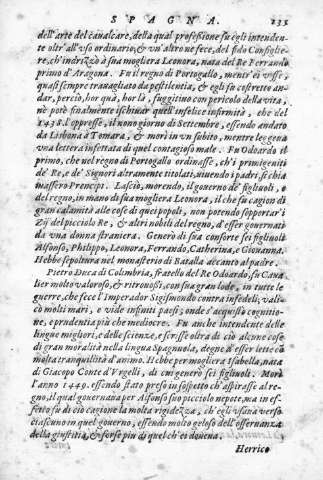 SPAGNA. 235
dell'arte del caualcare, della qual professione fu egli intenden-
te oltr'all'vso ordinario, & vn'altro ne fece, del fido Consiglie-
re, ch'indrizzò à sua mogliera Leonora, nata del Re Ferrando
primo d'Aragona. Fu il regno di Portogallo, mentr'ei visse,
quasi sempre trauagliato da pestilentia, & egli fu costretto an-
dar, perciò, hor quà, hor là, fuggitiuo con pericolo della vita,
nè potè finalmente ischiuar quell'infelice infirmità, che del
1438. l'oppresse, il nono giorno di Settembre, essendo andato
da Lisbona à Tomara, & morì in vn subito, mentre leggeua
vna lettera infettata di quel contagioso male. Fu Odoardo il
primo, che nel regno di Portogallo ordinasse, ch'i primigeniti
de' Re, e de' Signori altramente titolati, viuendo i padri, si chia
massero Prencipi. Lasciò, morendo, il gouerno de' figliuoli, e
del regno, in mano di sua mogliera Leonora, il che fu cagion di
gran calamità alle cose di quei popoli, non potendo sopportar i
Zij del picciolo Re, & altri nobili del regno, d'esser gouernati
da vna donna straniera. Generò di sua consorte sei figliuoli
Alfonso, Philippo, Leonora, Ferrando, Catherina, e Giouanna.
Hebbe sepoltura nel monasterio di Batalla accanto al padre.
Pietro Duca di Colimbria, fratello del Re Odoardo, fu Caua
lier molto valoroso, & ritrouossi, con sua gran lode, in tutte le
guerre, che fece l'Imperador Sigismondo contra infedeli; vali-
cò molti mari, e vide infiniti paesi, onde s'acquistò cognitio-
ne, e prudentia più che mediocre. Fu anche intendente delle
lingue migliori, e delle scienze, e scrisse oltra di ciò alcune cose
di gran moralità nella lingua Spagnuola, degne d'esser lette cō
molta tranquillità d'animo. Hebbe per mogliera Isabella, nata
di Giacopo Conte d'Vrgelli, di cui generò sei figliuoli. Morì
l'anno 1449. essendo stato preso in sospetto ch'aspirasse al re-
gno, il qual gouernaua per Alfonso suo picciolo nepote, ma in ef-
fetto fu di ciò cagione la molta rigidezza, ch'egli vsaua verso
ciascuno in quel gouerno, essendo molto geloso dell'osseruanza
della giustitia, & forse più di quel ch'ei doueua.
Herrico